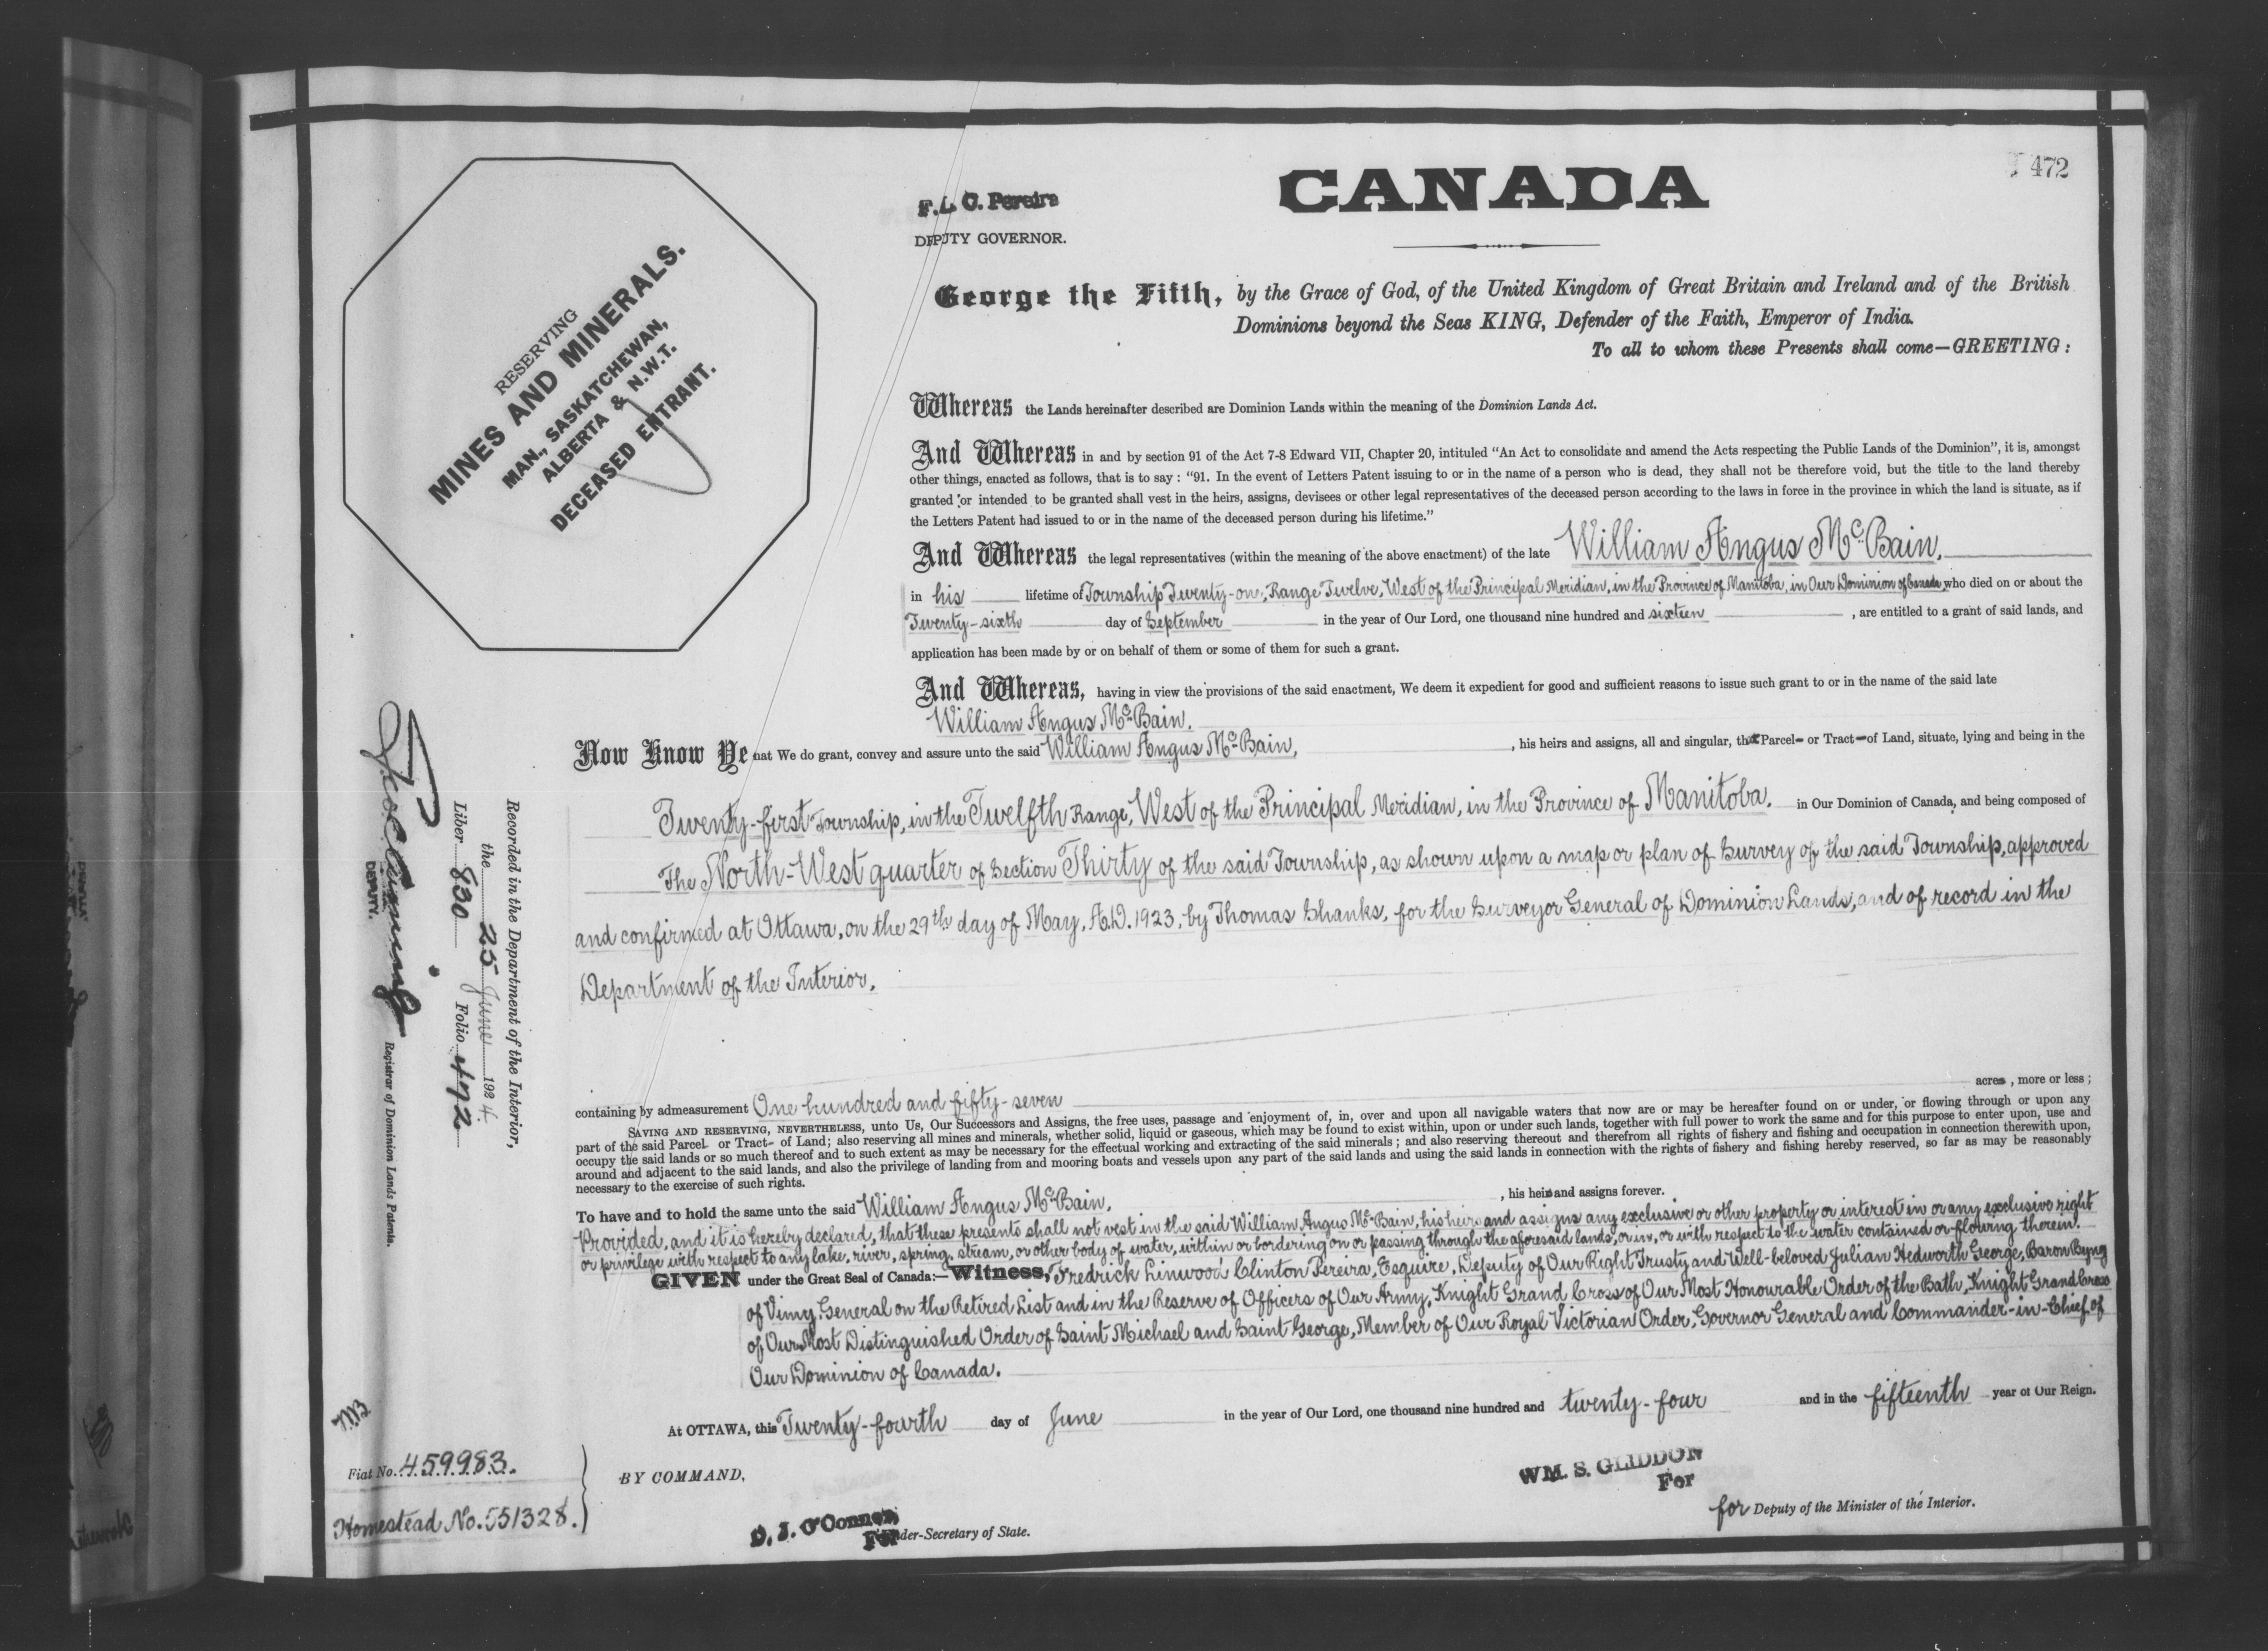 472
CANADA
F. L. C. Pereira
DEPUTY GOVERNOR.
George the Fifth, by the Grace of God, of the United Kingdom of Great Britain and Ireland and of the British
Dominions beyond the Seas KING, Defender of the Faith, Emperor of India.
To all to whom these Presents shall come—GREETING:
RESERVING
MINES AND MINERALS.
MAN., SASKATCHEWAN,
ALBERTA & N.W.T.
DECEASED ENTRANT.
Whereas the Lands hereinafter described are Dominion Lands within the meaning of the Dominion Lands Act.
And Whereas in and by section 91 of the Act 7-8 Edward VII, Chapter 20, intituled "An Act to consolidate and amend the Acts respecting the Public Lands of the Dominion", it is, amongst
other things, enacted as follows, that is to say: "91. In the event of Letters Patent issuing to or in the name of a person who is dead, they shall not be therefore void, but the title to the land thereby
granted or intended to be granted shall vest in the heirs, assigns, devisees or other legal representatives of the deceased person according to the laws in force in the province in which the land is situate, as if
the Letters Patent had issued to or in the name of the deceased person during his lifetime."
And Whereas the legal representatives (within the meaning of the above enactment) of the late William Angus McBain,
in his lifetime of Township Twenty-one, Range Twelve, West of the Principal Meridian, in the Province of Manitoba, in Our Dominion of Canada, who died on or about the
Twenty-sixth day of September in the year of Our Lord, one thousand nine hundred and sixteen, are entitled to a grant of said lands, and
application has been made by or on behalf of them or some of them for such a grant.
And Whereas, having in view the provisions of the said enactment, We deem it expedient for good and sufficient reasons to issue such grant to or in the name of the said late
William Angus McBain.
Now Know Ye hat We do grant, convey and assure unto the said William Angus McBain, , his heirs and assigns, all and singular, that Parcel- or Tract- of Land, situate, lying and being in the
Twenty-first Township, in the Twelfth Range, West of the Principal Meridian, in the Province of Manitoba, in Our Dominion of Canada, and being composed of
The North-West quarter of Section Thirty of the said Township, as shown upon a map or plan of Survey of the said Township, approved
and confirmed at Ottawa, on the 29th day of May, A.D. 1923, by Thomas Shanks, for the Surveyor General of Dominion Lands, and of record in the
Department of the Interior.
containing by admeasurement One hundred and fifty-seven acres, more or less;
SAVING AND RESERVING, NEVERTHELESS, unto Us, Our Successors and Assigns, the free uses, passage and enjoyment of, in, over and upon all navigable waters that now are or may be hereafter found on or under, or flowing through or upon any
part of the said Parcel- or Tract- of Land; also reserving all mines and minerals, whether solid, liquid or gaseous, which may be found to exist within, upon or under such lands, together with full power to work the same and for this purpose to enter upon, use and
occupy the said lands or so much thereof and to such extent as may be necessary for the effectual working and extracting of the said minerals; and also reserving thereout and therefrom all rights of fishery and fishing and occupation in connection therewith upon,
around and adjacent to the said lands, and also the privilege of landing from and mooring boats and vessels upon any part of the said lands and using the said lands in connection with the rights of fishery and fishing hereby reserved, so far as may be reasonably
necessary to the exercise of such rights.
To have and to hold the same unto the said William Angus McBain, , his heirs and assigns forever.
Provided, and it is hereby declared, that these presents shall not vest in the said William Angus McBain, his heirs and assigns any exclusive or other property or interest in or any exclusive right
or privilege with respect to any lake, river, spring, stream, or other body of water, within or bordering on or passing through the aforesaid lands, or in, or with respect to the water contained or flowing therein.
GIVEN under the Great Seal of Canada:—Witness, Fredrick Linwood Clinton Pereira, Esquire, Deputy of Our Right Trusty and Well-beloved Julian Hedworth George, Baron Byng
of Vimy, General on the Retired List and in the Reserve of Officers of Our Army, Knight Grand Cross of Our Most Honourable Order of the Bath, Knight Grand Cross
of Our Most Distinguished Order of Saint Michael and Saint George, Member of Our Royal Victorian Order, Governor General and Commander-in-Chief of
Our Dominion of Canada.
At OTTAWA, this Twenty-fourth day of June in the year of Our Lord, one thousand nine hundred and twenty-four and in the fifteenth year of Our Reign.
BY COMMAND,
WM. S. GLIDDON
For
for Deputy of the Minister of the Interior.
D. J. O'Connor
For
der-Secretary of State.
Recorded in the Department of the Interior,
the 25 June 1924
Liber 830 Folio 472
DEPUTY.
Registrar of Dominion Lands Patents.
Fiat No. 459983.
Homestead No. 551328.